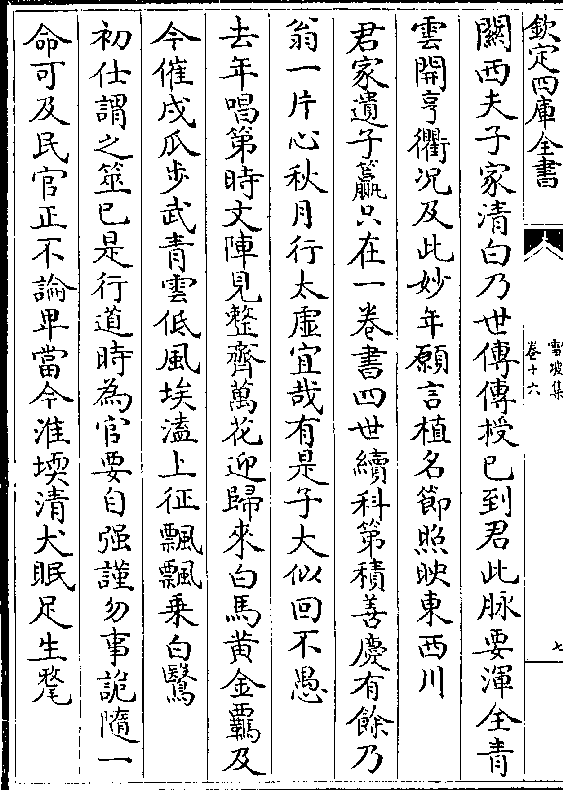 欽定四庫全書
雪坡集
卷十六
七
關西夫子家清白乃世傳傳授已到君此脉要渾全青
雲開亨衢况及此妙年願言植名節照映東西川
君家遺子籯只在一卷書四世續科第積善慶有餘乃
翁一片心秋月行太虛宜哉有是子大似回不愚
去年唱第時文陣見整齊萬花迎歸來白馬黄金羈及
今催戍瓜步武青雲低風埃溘上征飄飄乗白鷖
初仕謂之筮已是行道時為官要自强謹勿事詭隨一
命可及民官正不論卑當今淮堧清犬眠足生氂